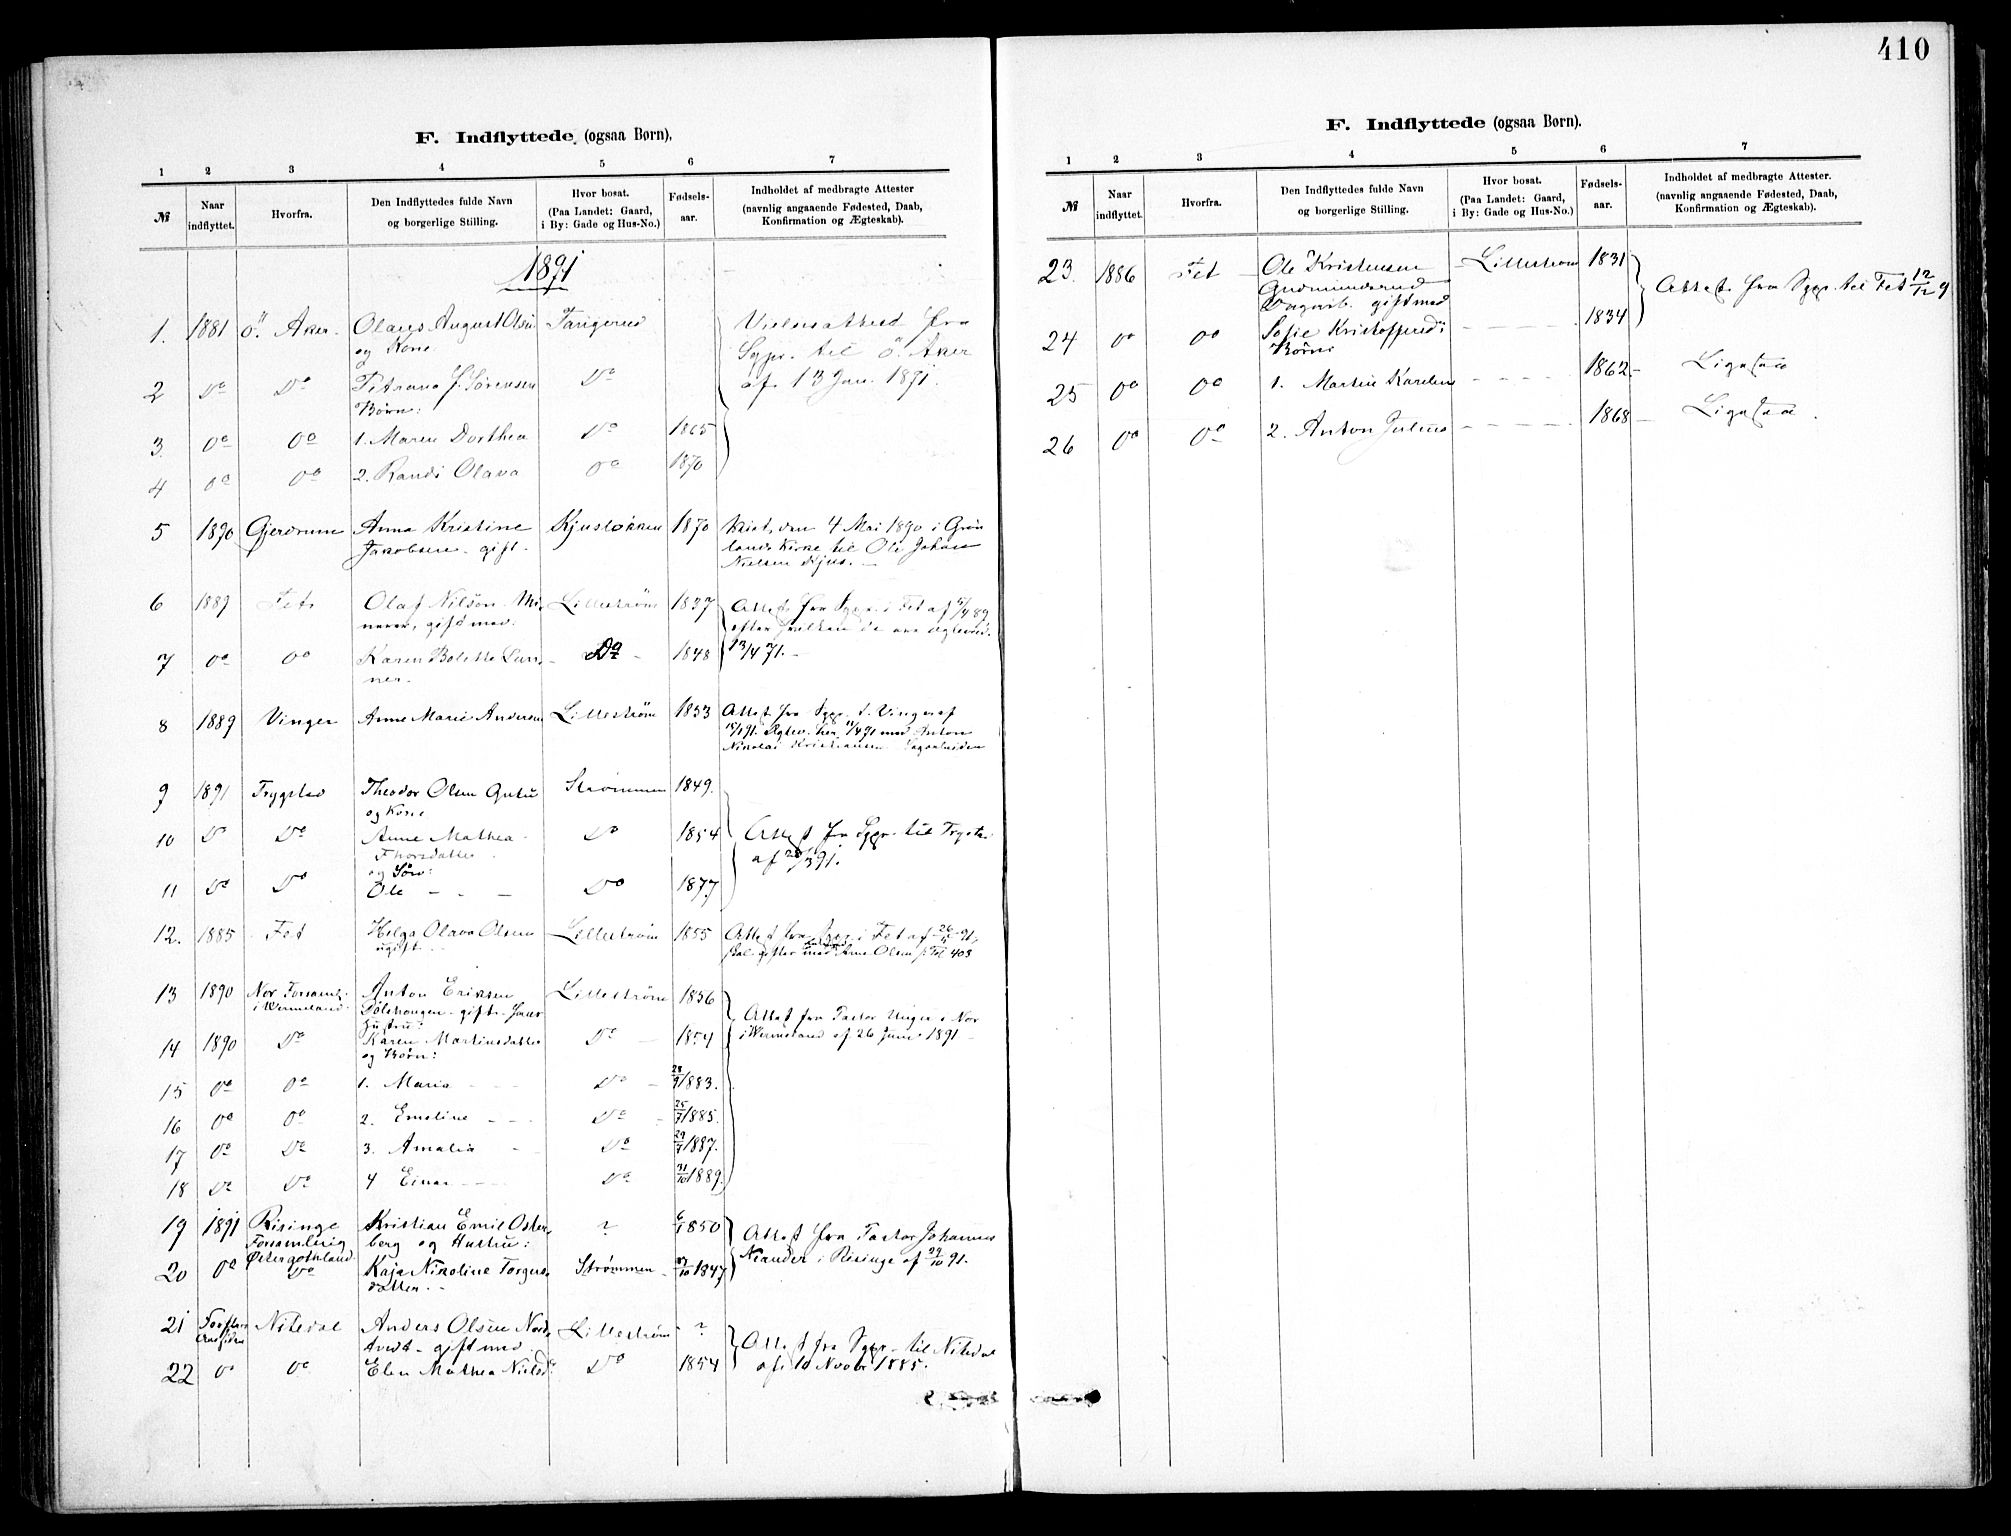 410
F. Indflyttede (ogsaa Børn).
1 2 3 4 5 6 7
№ Naar indflyttet. Hvorfra. Den Indflyttedes fulde Navn og borgerlige Stilling. Hvor bosat. (Paa Landet: Gaard, i By: Gade og Hus-No.) Fødselsaar. Indholdet af medbragte Attester (navnlig angaaende Fødested, Daab, Konfirmation og Ægteskab).
1891
1. 1881 Ö. Aker Olaus August Olsen Tangerud
og Kone
fra
til Ö. Aker
2 Do Do Petrane J. Sørensen Do
af 13 Jan. 1891.
Børn:
3. Do Do 1. Maren Dorthea Do 1865
4 Do Do 2. Randi Olava Do 1870
5 1890 Gjerdrum Anna Kristine Kjusløkken 1870 Viet den 4 Mai 1890 i Grøn
Jakobsen gift lands Kirke til Ole Johan
Nielsen Kjus.
6 1889 Fet Olaf Nilson Lillestrøm 1837 Attest fra Sgpr. i Fet af 5/4 89
gift med
7 Do Do Karen Bolette Do 1848 13/4 71.
8 1889 Vinger Anne Marie Andersen Lillestrøm 1853 Attest fra Sgpr. i Vinger af
med Anton
Nikolai Kristiansen
9 1891 Trygstad Theodor Olsen Strømmen 1849.
og Kone
10 Do Do Anne Mathea Do 1854 Attest fra Sgpr. til Trygstad
Thorsdatter
og Søn:
11 Do Do Ole Do 1877
12. 1885 Fet Helga Olava Olsen Lillestrøm 1855 Attest fra Sgpr i Fet af 26/5 91,
ugift
med Arne Olsen Fol 403
13 1890 Nor Forsaml. Anton Eriksen Lillestrøm 1856
i Wermeland gift
Hustru:
Attest fra Pastor Unger i Nor
14 1890 Do Karen Martinsdatter Do 1854 i Wermeland af 26 Juni 1891
og Børn:
15 Do Do 1. Maria Do 28/9 1883.
16 Do Do 2. Emeline Do 25/7 1885.
17 Do Do 3. Amalia Do 29/9 1887.
18 Do Do 4 Einar Do 31/10 1889.
19 1891 Risinge Kristian Emil Oster- ? 6/1 1850 Attest fra Pastor Johannes
Forsamling berg og Hustru: i Risinge af 29/10 91.
Østergothland
20 Do Do Kaja Nikoline Torgus- Strømmen 1847
datter
21 Nitedal Anders Olsen Lillestrøm ?
gift med Attest fra Sgpr. til Nitedal
22 Do Do Elen Mathea Nielsd: Do 1854 af 10 Novbr 1885.
F. Indflyttede (ogsaa Børn).
1 2 3 4 5 6 7
№ Naar indflyttet. Hvorfra. Den Indflyttedes fulde Navn og borgerlige Stilling. Hvor bosat. (Paa Landet: Gaard, i By: Gade og Hus-No.) Fødselsaar. Indholdet af medbragte Attester. (navnlig angaaende Fødested, Daab, Konfirmation og Ægteskab).
23. 1886 Fet Ole Kristensen Lillestrøm 1831
Gudmundsrud Attest fra Sgpr. til Fet 12/12 9
gift med
24 Do Do Sofie Kristoffersd: 1834
Børn:
25 Do Do 1. Martin Karelius 1862 Ligesaa
26 Do Do 2. Anton Julius 1868 Ligesaa